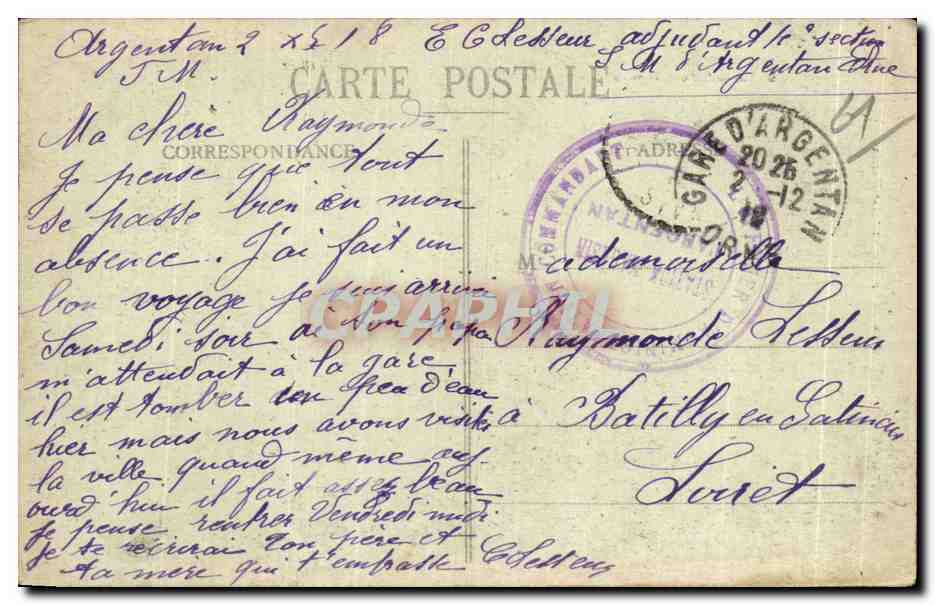 Argentan 2 xbre 18 E C Lesseur adjudant 1e section
T M. S M d'Argentan Orne
CARTE POSTALE
CORRESPONDANCE
ADRESSE
Ma chère Raymonde
Je pense que tout
se passe bien en mon
absence. J'ai fait un
bon voyage Je suis arrivé
Samedi soir ai ton papa
m'attendait à la gare,
il est tomber un peu d'eau
hier mais nous avons visiter
la ville quand même auj-
ourd'hui il fait assez beau
Je pense rentrer Vendredi midi
Je te récrirai Ton père et
ta mère qui t'embrasse CLesseur
Mademoiselle
Raymonde Lesseur
à Batilly en Gatinais
Loiret
GARE D'ARGENTAN
20 25
2 -12
18
ORNE
COMMANDANT
ARGENTAN
CPARAMA